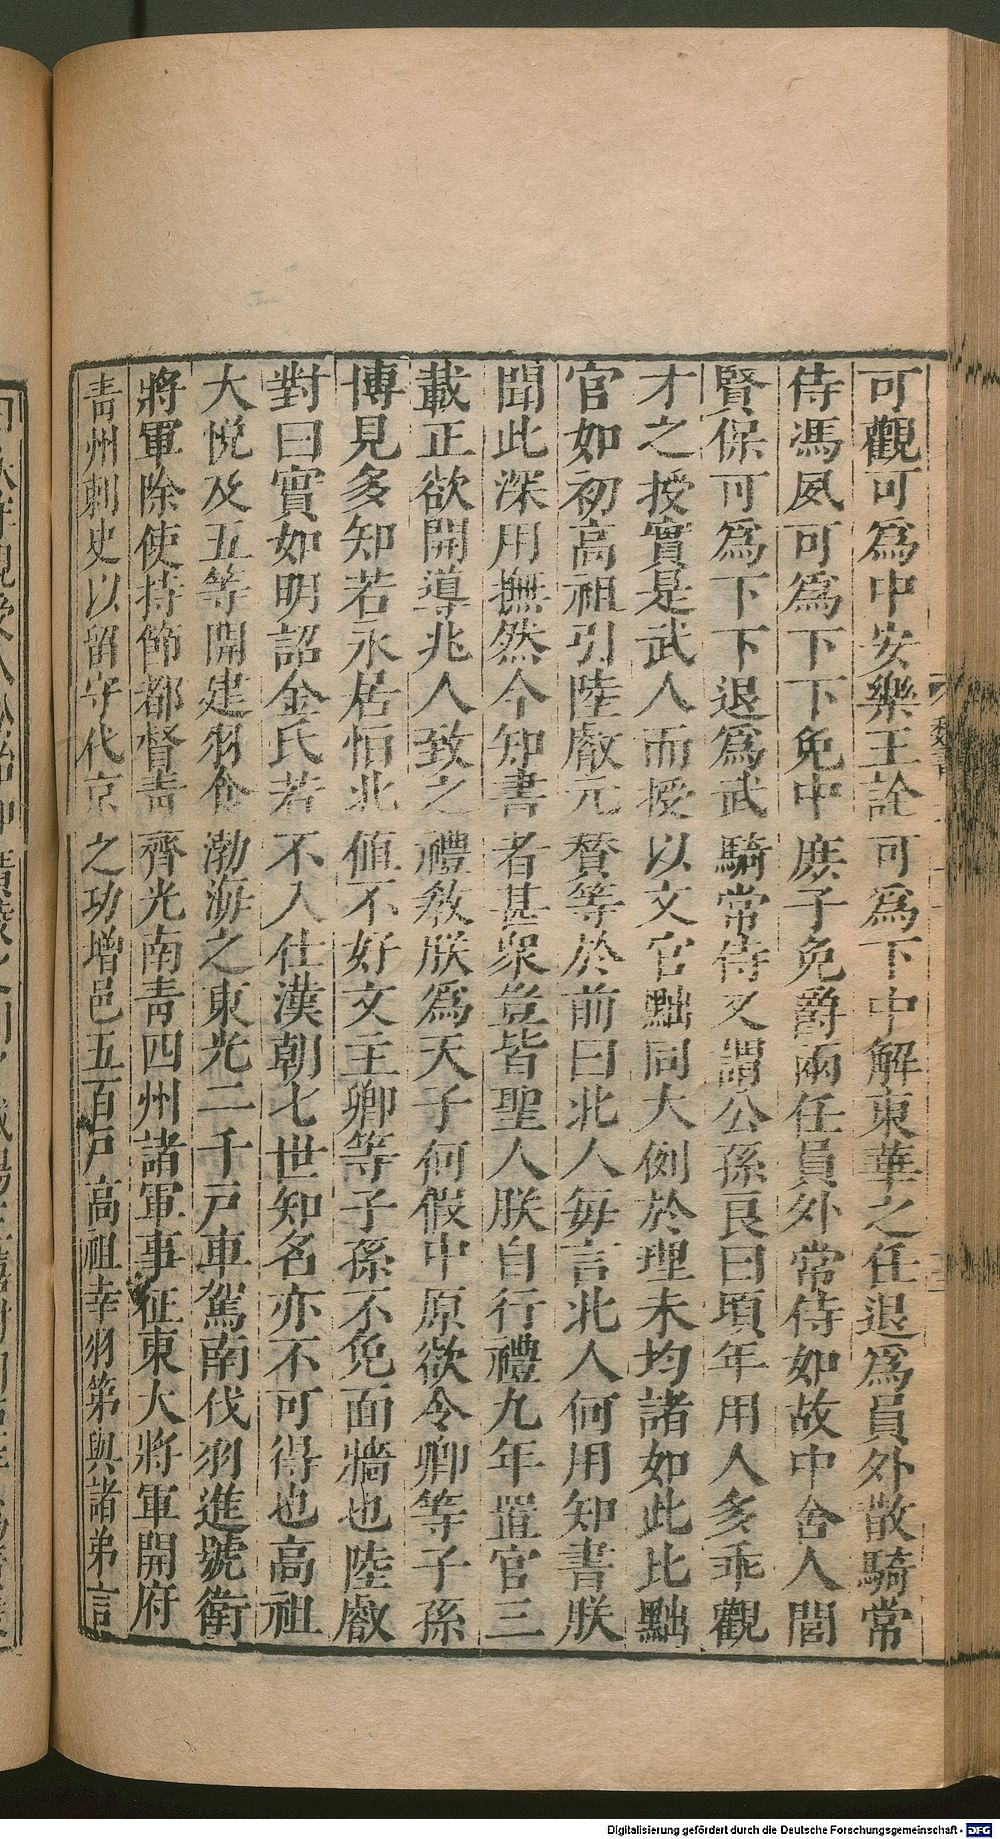 可觀可為中安樂王詮可為下中解東華之任退為員外散騎常
侍馮夙可為下下免中庶子免爵兩任員外常侍如故中舍人閭
賢保可為下下退為武騎常侍又謂公孫良曰頃年用人多乖觀
才之授實是武人而授以文官黜同大例於理未均諸如此比黜
官如初高祖引陸叡元贊等於前曰北人每言北人何用知書朕
聞此深用撫然今知書者甚眾豈皆聖人朕自行禮九年置官三
載正欲開導兆人致之禮教朕為天子何假中原欲令卿等子孫
博見多知若永居恒北值不好文主卿等子孫不免面牆也陸叡
對曰實如明詔金氏若不入仕漢朝七世知名亦不可得也高祖
大悅及五等開建羽食渤海之東光二千戶車駕南伐羽進號衛
將軍除使持節都督青齊光南青四州諸軍事征東大將軍開府
青州刺史以留守代京之功增邑五百戶高祖幸羽第與諸弟言
Digitalisierung gefördert durch die Deutsche Forschungsgemeinschaft - DFG